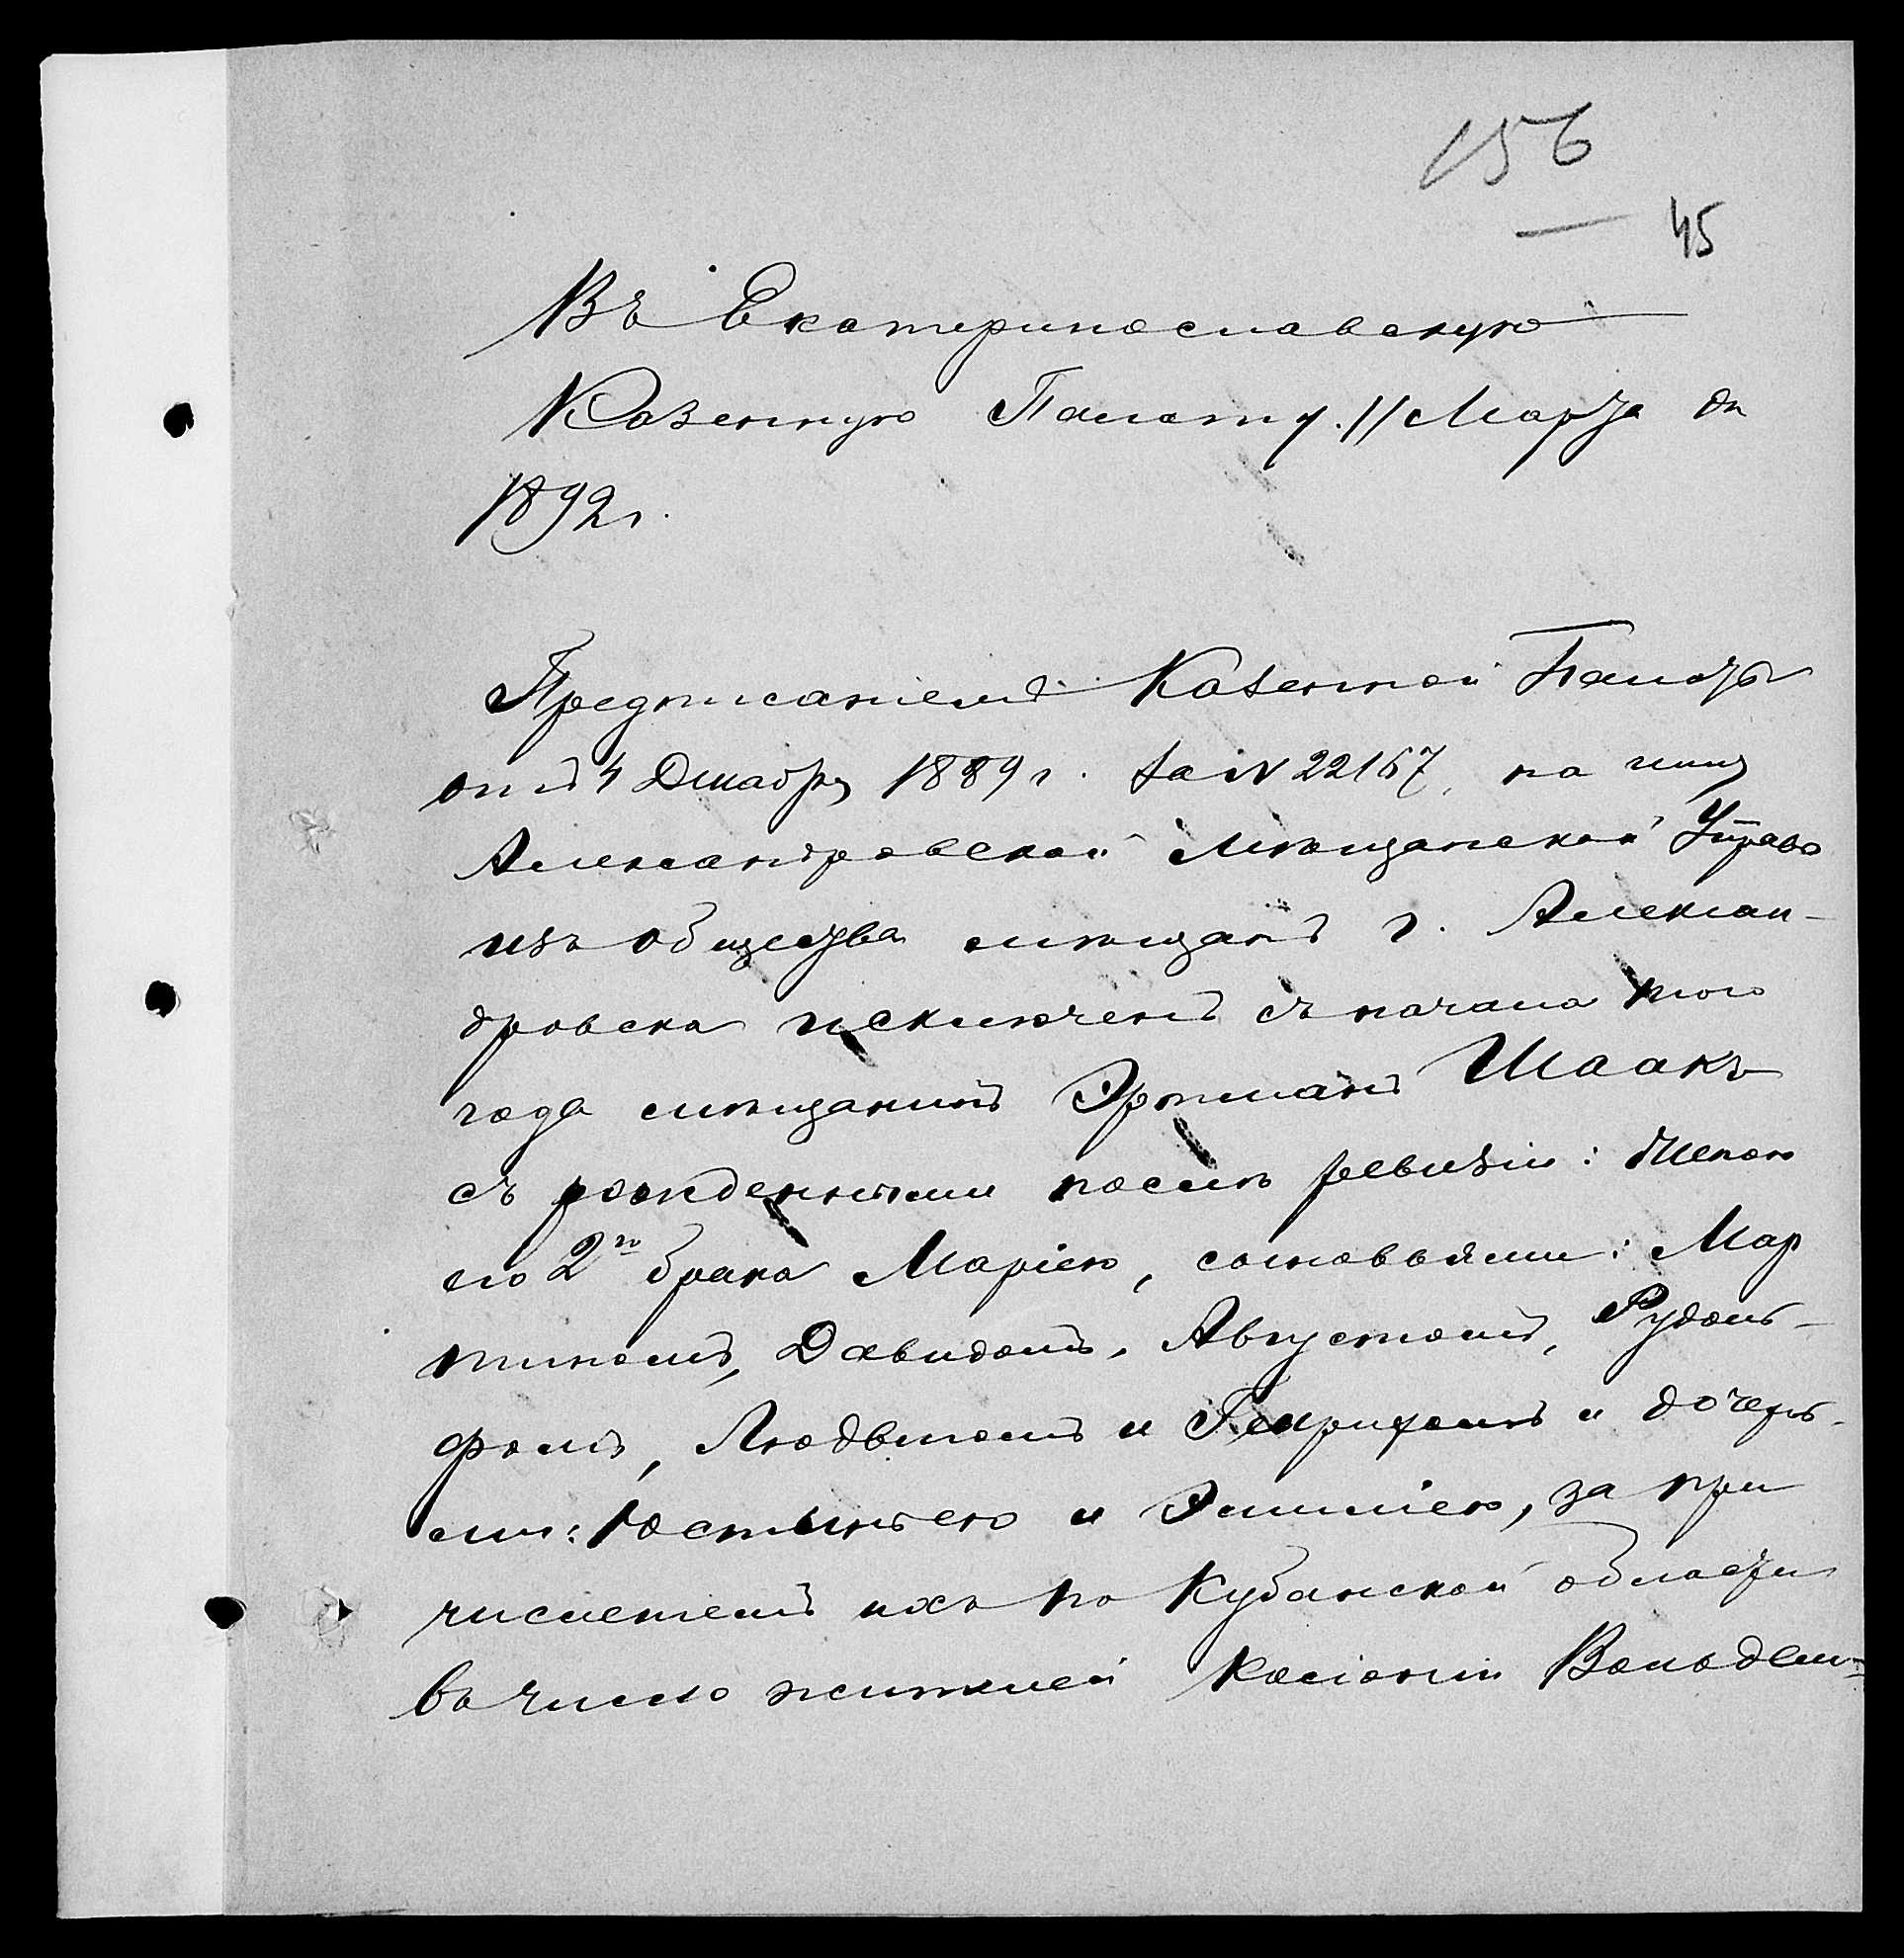 156
45
Въ Екатеринославскую
Казенную Палату. 11 Марта дн
1892 г.
Предписаніемъ Казенной Палаты
отъ 4 Декабря 1889 г. за N 22167, на имя
Александровской Мѣщанской Управы
изъ общества мѣщанъ г. Алексан-
дровска исключенъ съ начала того
года мѣщанинъ Эртманъ Шаакъ
съ рожденными послѣ ревизіи: женою
его 2го брака Маріею, сыновьями: Мар
тиномъ, Давидомъ, Августомъ, Рудоль-
фомъ, Людвигомъ и Генрихомъ и дочерь-
ми: Юстиньею и Эмиліею, за при
численіемъ ихъ по Кубанской области
въ число жителей Колоніи Вольдем-